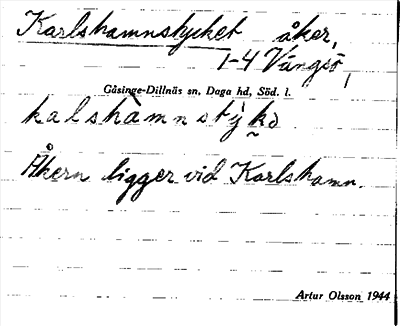 Karlshamnstycket åker,
1-4 Vängsö,
Gåsinge-Dillnäs sn, Daga hd, Söd. l.
kalshàmnstỳkə
Åkern ligger vid Karlshamn.
Artur Olsson 1944